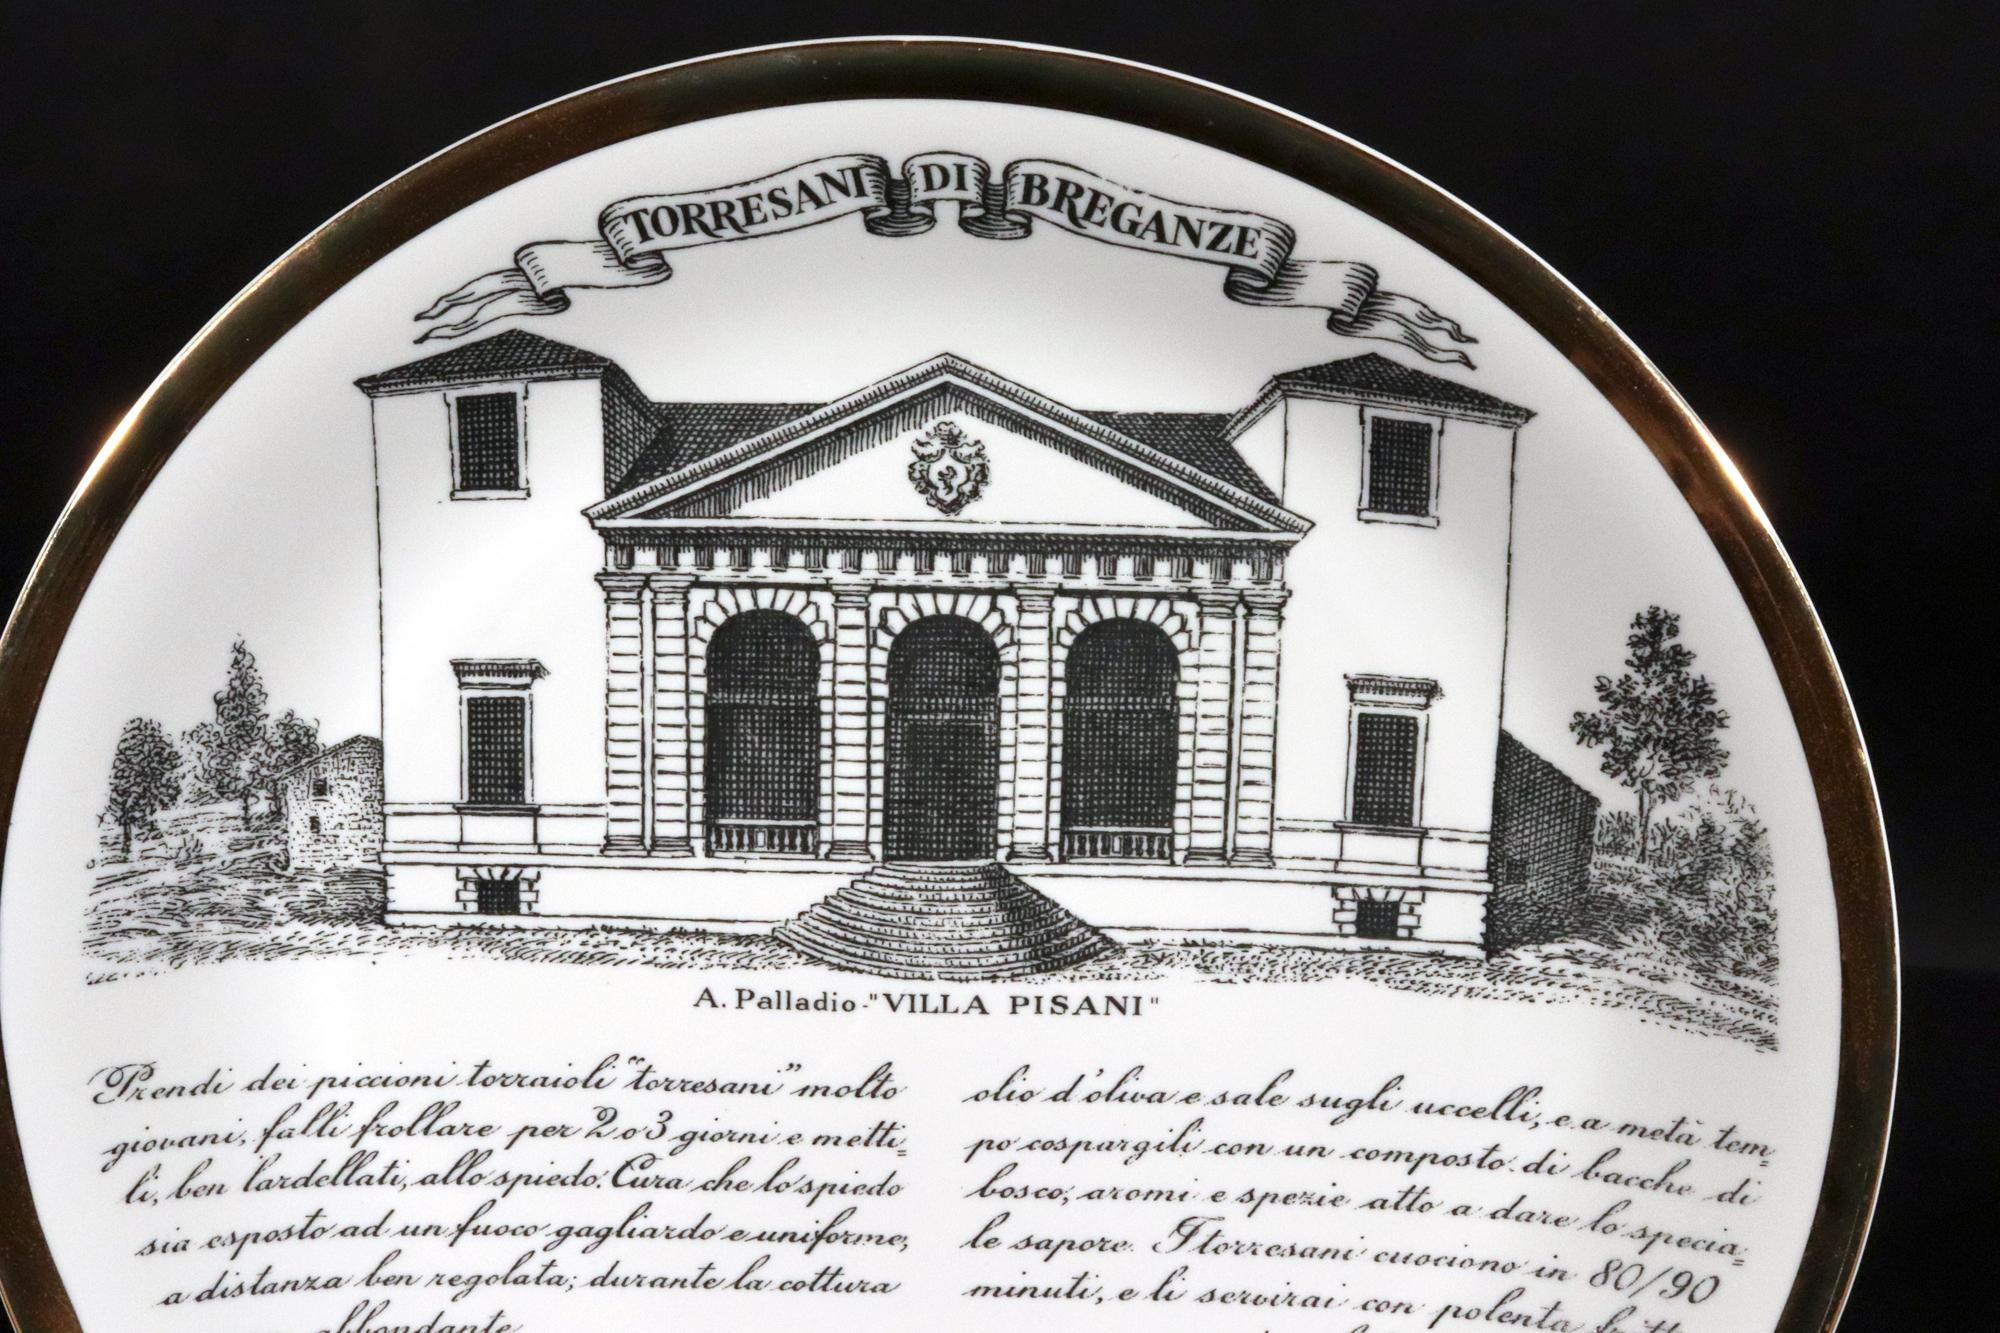 TORRESANI DI BREGANZE
A. Palladio - "VILLA PISANI"
Prendi dei piccioni torraioli "torresani" molto
giovani, falli frollare per 2 o 3 giorni e metti=
li, ben lardellati, allo spiedo. Cura che lo spiedo
sia esposto ad un fuoco gagliardo e uniforme,
a distanza ben regolata; durante la cottura
abbondante
olio d'oliva e sale sugli uccelli, e a metà tem=
po cospargili con un composto di bacche di
bosco, aromi e spezie atto a dare lo specia=
le sapore. I torresani cuociono in 80/90
minuti, e li servirai con polenta